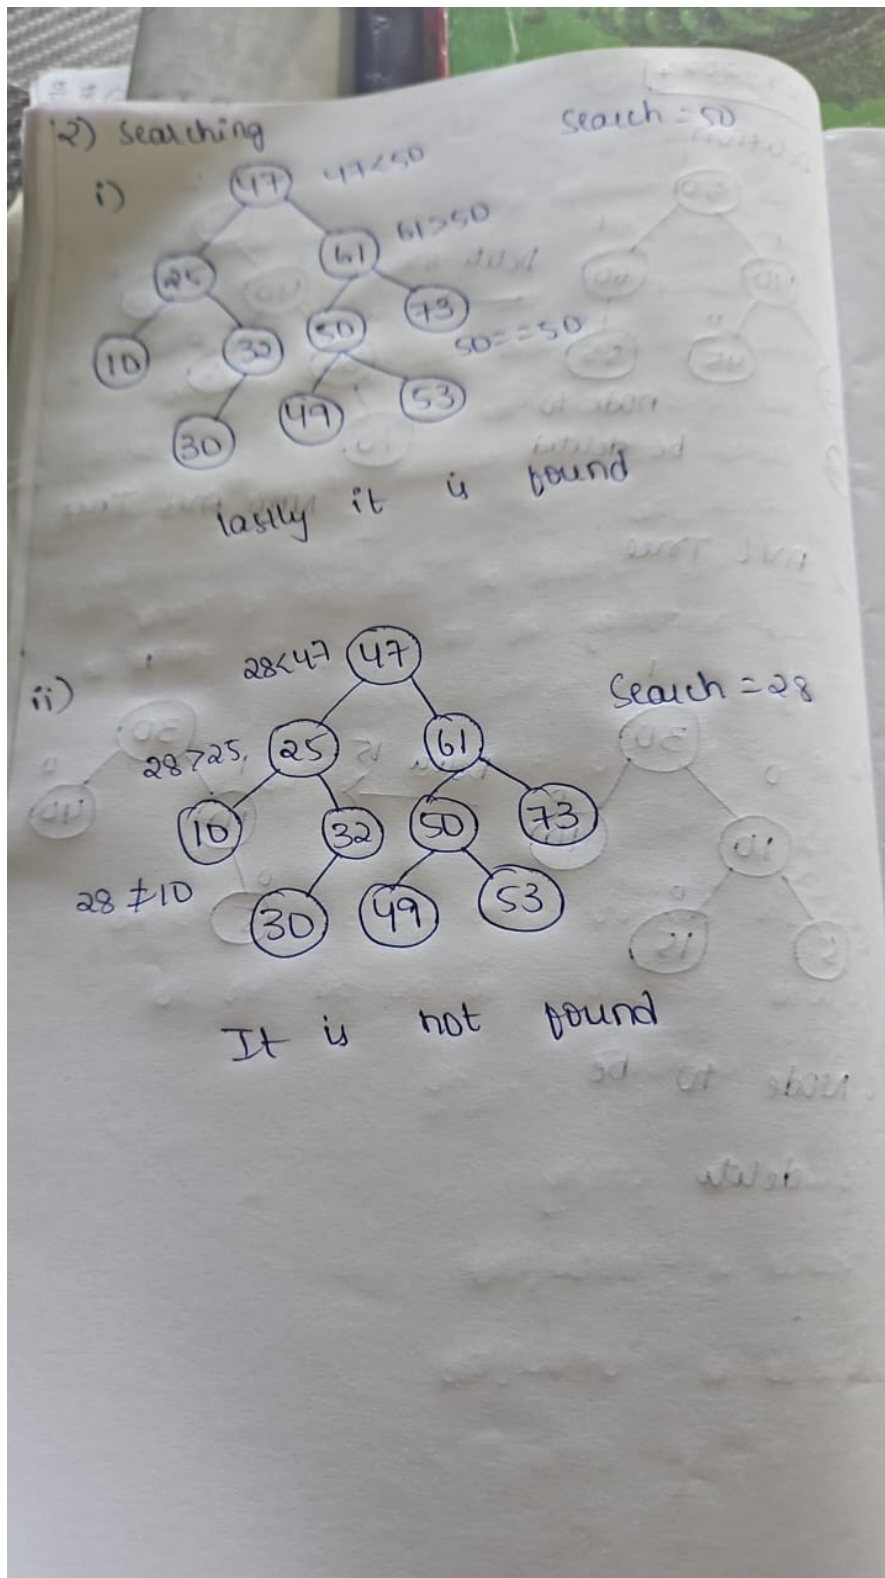 2) Searching
Search = 50
i)
47 47<50
61 61>50
25
73
50 50==50
10 32
49 53
30
lastly it is found
ii)
28<47 47
Search = 28
28>25 25 61
10 32 50 73
28≠10
30 49 53
It is not found